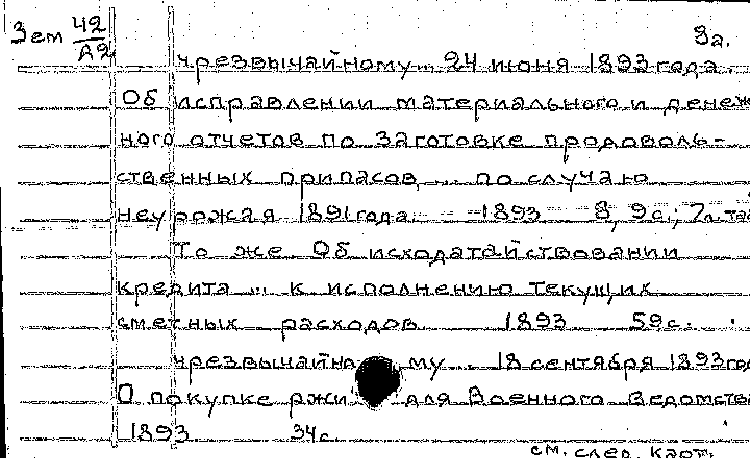 Зем 42/А2 3а.
чрезвычайному... 24 июня 1893 года.
Об исправлении материального и денеж
ного отчетов по заготовке продоволь-
ственных припасов ... по случаю
неурожая 1891 года. - 1893 8, 9с.; 7л. таб
То же Об исходатайствовании
кредита ... к исполнению текущих
сметных расходов 1893 59с.
чрезвычайному... 18 сентября 1893 год
О покупке ржи для Военного Ведомства
1893 34с
см. след. карт.